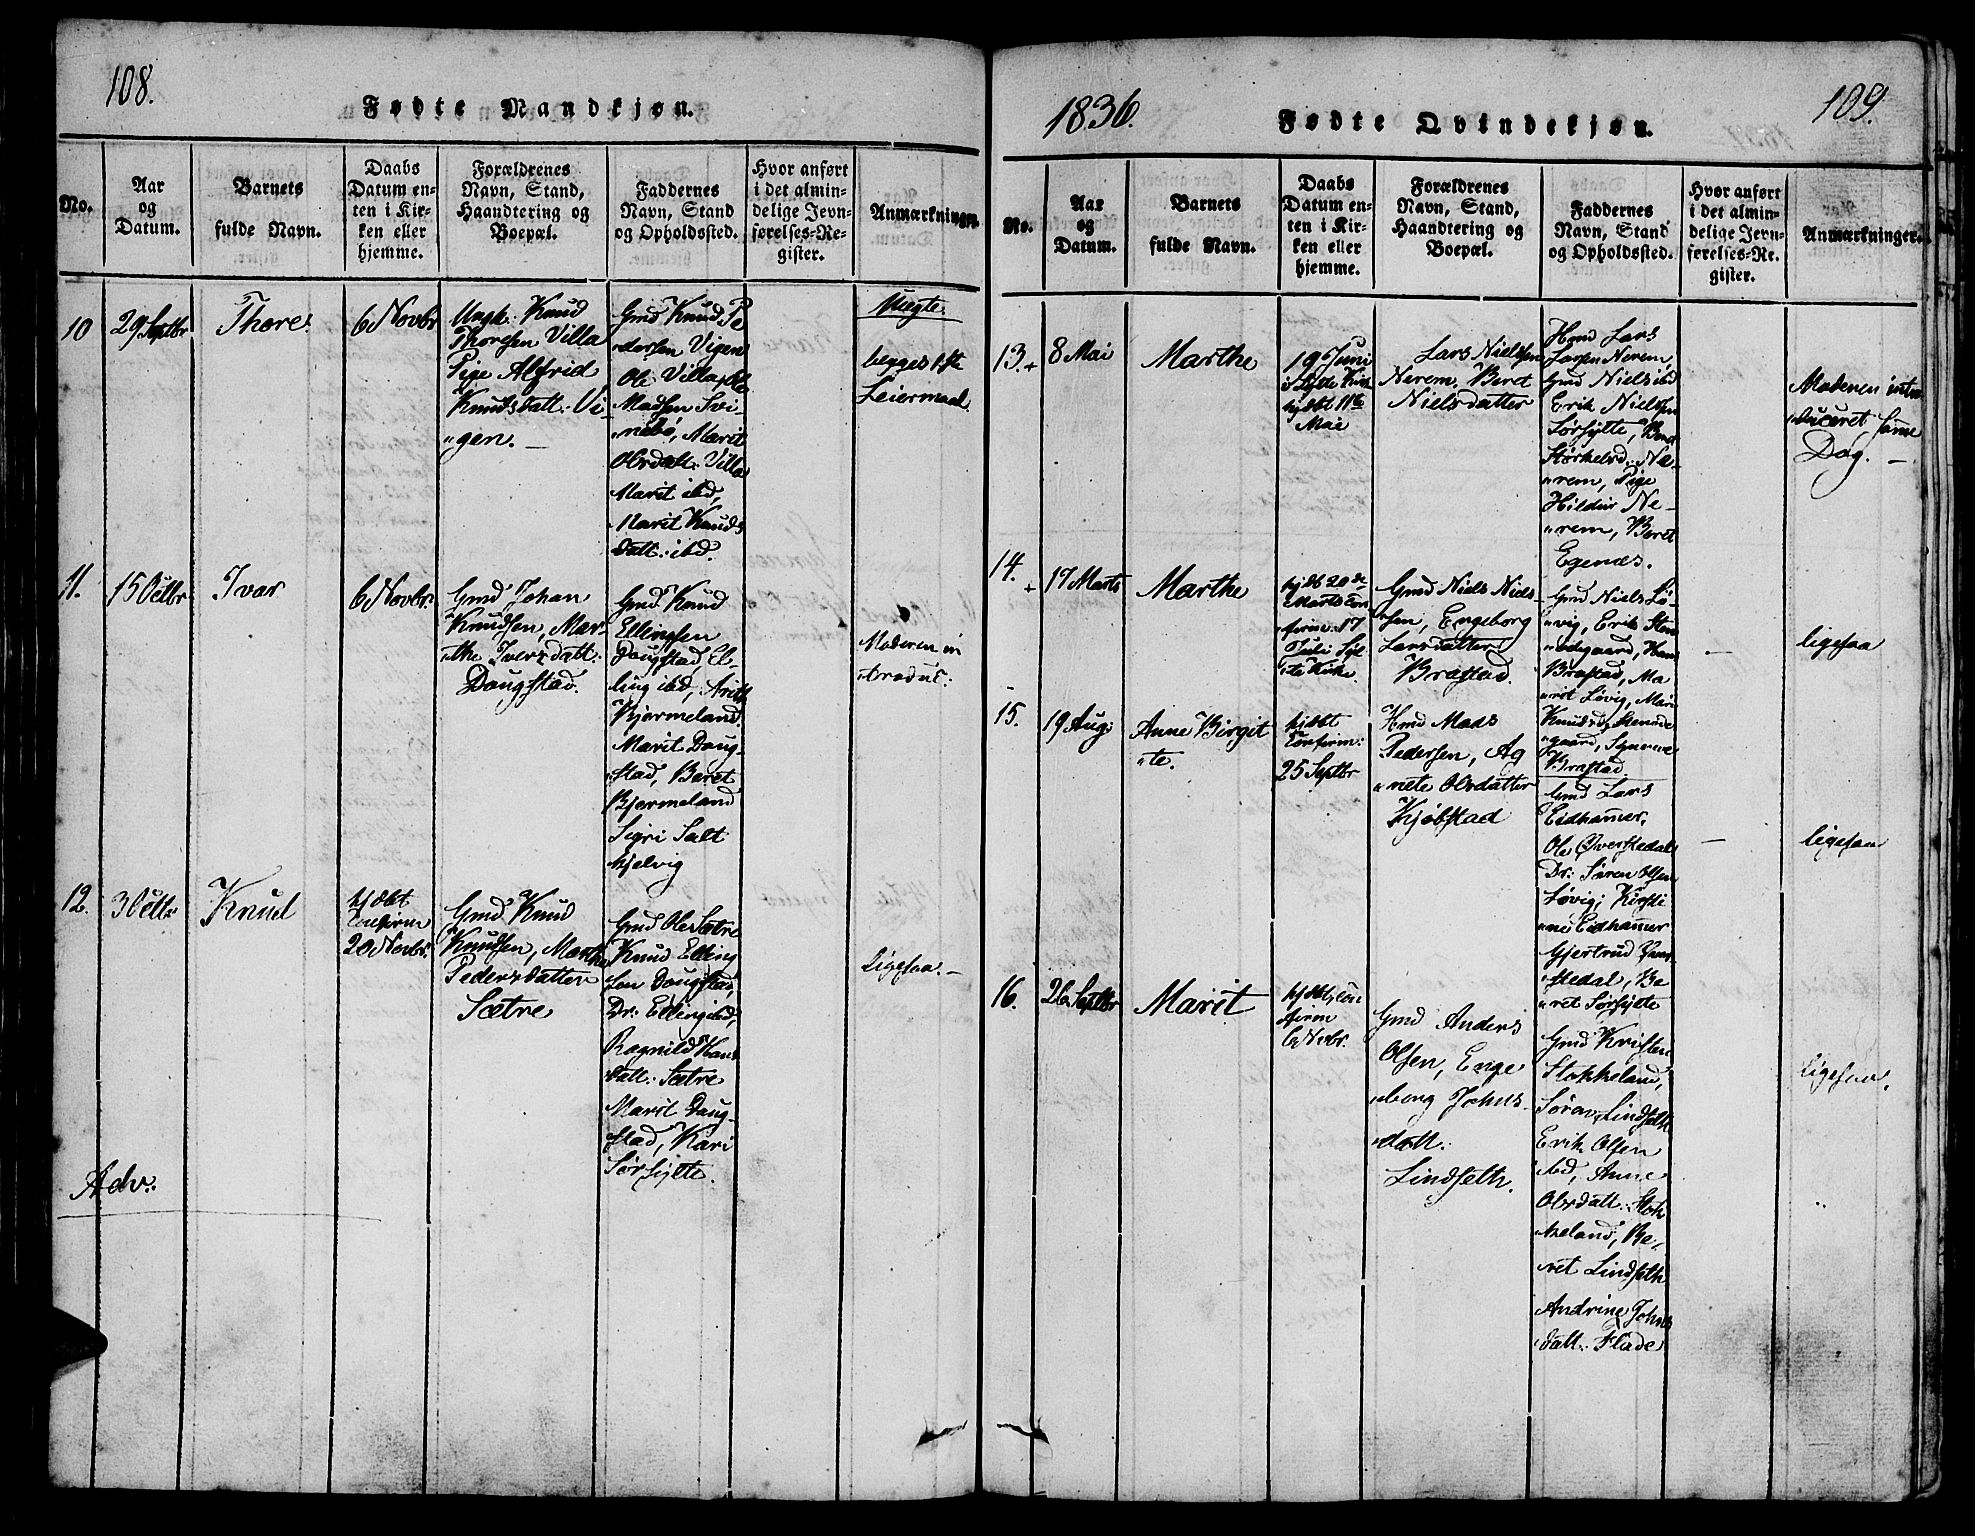 108.
Fødte Mandkjøn.
No.
Aar
og
Datum.
Barnets
fulde Navn.
Daabs
Datum en-
ten i Kir-
ken eller
hjemme.
Forældrenes
Navn, Stand,
Haandtering og
Boepæl.
Faddernes
Navn, Stand
og Opholdssted.
Hvor anført
i det almin-
delige Jevn-
førelses-Re-
gister.
Anmærkninger.
10
29 Septbr
Thore
6 Novbr
Ungk: Knud
Thoresen Villa
Pige Alfrid
Knudsdatt: Vi-
"gen. —
Gmd Knud Pe
"dersen Vigen
Ole Villa, Ole
Madsen Svi-
"nebø, Marit
Olsdatt: Villa
Marit ibd,
Marit Knuds
datt: ibd.
Uægte
begges 1ste
Leiermaal.
11.
15 Octbr
Ivar
6 Novbr.
Gmd Johan
Knudsen, Mar-
"the Iversdatt:
Dougstad.
Gmd Knud
Ellingsen
Dougstad, El-
ling ibd,
Bjermeland,
Marit Doug-
"stad, Beret
Bjermeland
Sigri Salt
hjelvig
Moderen in
"troduc:
12.
3 Octbr
Knud
hjdbt
Confirm
20 Novbr.
Gmd Knud
Knudsen, Marthe
Pedersdatter
Sætre
Gmd Ole Sætre
Knud Elling
sen Dougstad,
Dr: Elling ibd,
Ragnild Hans
datt: Sætre
Marit Doug-
"stad, Kari
Sørsylte.
ligesaa. —
Adv.
1836.
Fødte Qvindekjøn.
109.
No.
Aar
og
Datum.
Barnets
fulde Navn.
Daabs
Datum en-
ten i Kir-
ken eller
hjemme.
Forældrenes
Navn, Stand,
Haandtering og
Boepæl.
Faddernes
Navn, Stand
og Opholdssted.
Hvor anført
i det almin-
delige Jevn-
førelses-Re-
gister.
Anmærkninger.
13. +
8 Mai
Marthe
19 Juni
i Sylte Kirke
hjdbt 11te
Mai
Lars Nielsen
Nerem, Beret
Nielsdatter
Hmd Lars
Larsen Nerem,
Gmd Niels ibd
Erik Nielsen
Sørsylte, Beret
Størkelsd: Ne-
"rem, Pige
Hildur Ne-
"rem, Beret
Egenæs.
Moderen intro
"duceret samme
Dag. —
14. +
17 Marts
Marthe
hjdbt 20de
Marts Con
"firm: 17
Juli Syl
"te Kirke.
Gmd Niels Niel-
"sen, Engeborg
Larsdatter
Brastad.
Gmd Niels Lø-
"vig, Erik Stem
"medgaard, Hans
Brastad, Ma
"rit Løvig, Mari
Knudsd: Stemme
"gaard, Synneve
Brastad
—
ligesaa
15.
19 Aug:
Anne Birgit
"te.
hjdbt
Confirm:
25 Septbr
Hmd Mads
Pedersen, Ag
"nete Olsdatter
Kjøbstad
Gmd Lars
Eidhamer,
Ole Øverstedal
Dr: Søren Olsen
Løvig; Kirsti
"ne Eidhamer
Gjertrud
"stedal, Be
"ret Sørsylte
—
ligesaa
16.
26 Septbr
Marit
hjdbt, Con
"firm
6 Novbr.
Gmd Anders
Olsen, Enge
"borg Johns-
"datt:
Lindseth.
Gmd Kristen
Stokkeland,
Søren Lindseth
Erik Olsen
ibd, Anne
Olsdatt: Stok
"keland, Be-
"ret Lindseth
Andrine Johns
datt: Flade
ligesaa.
"